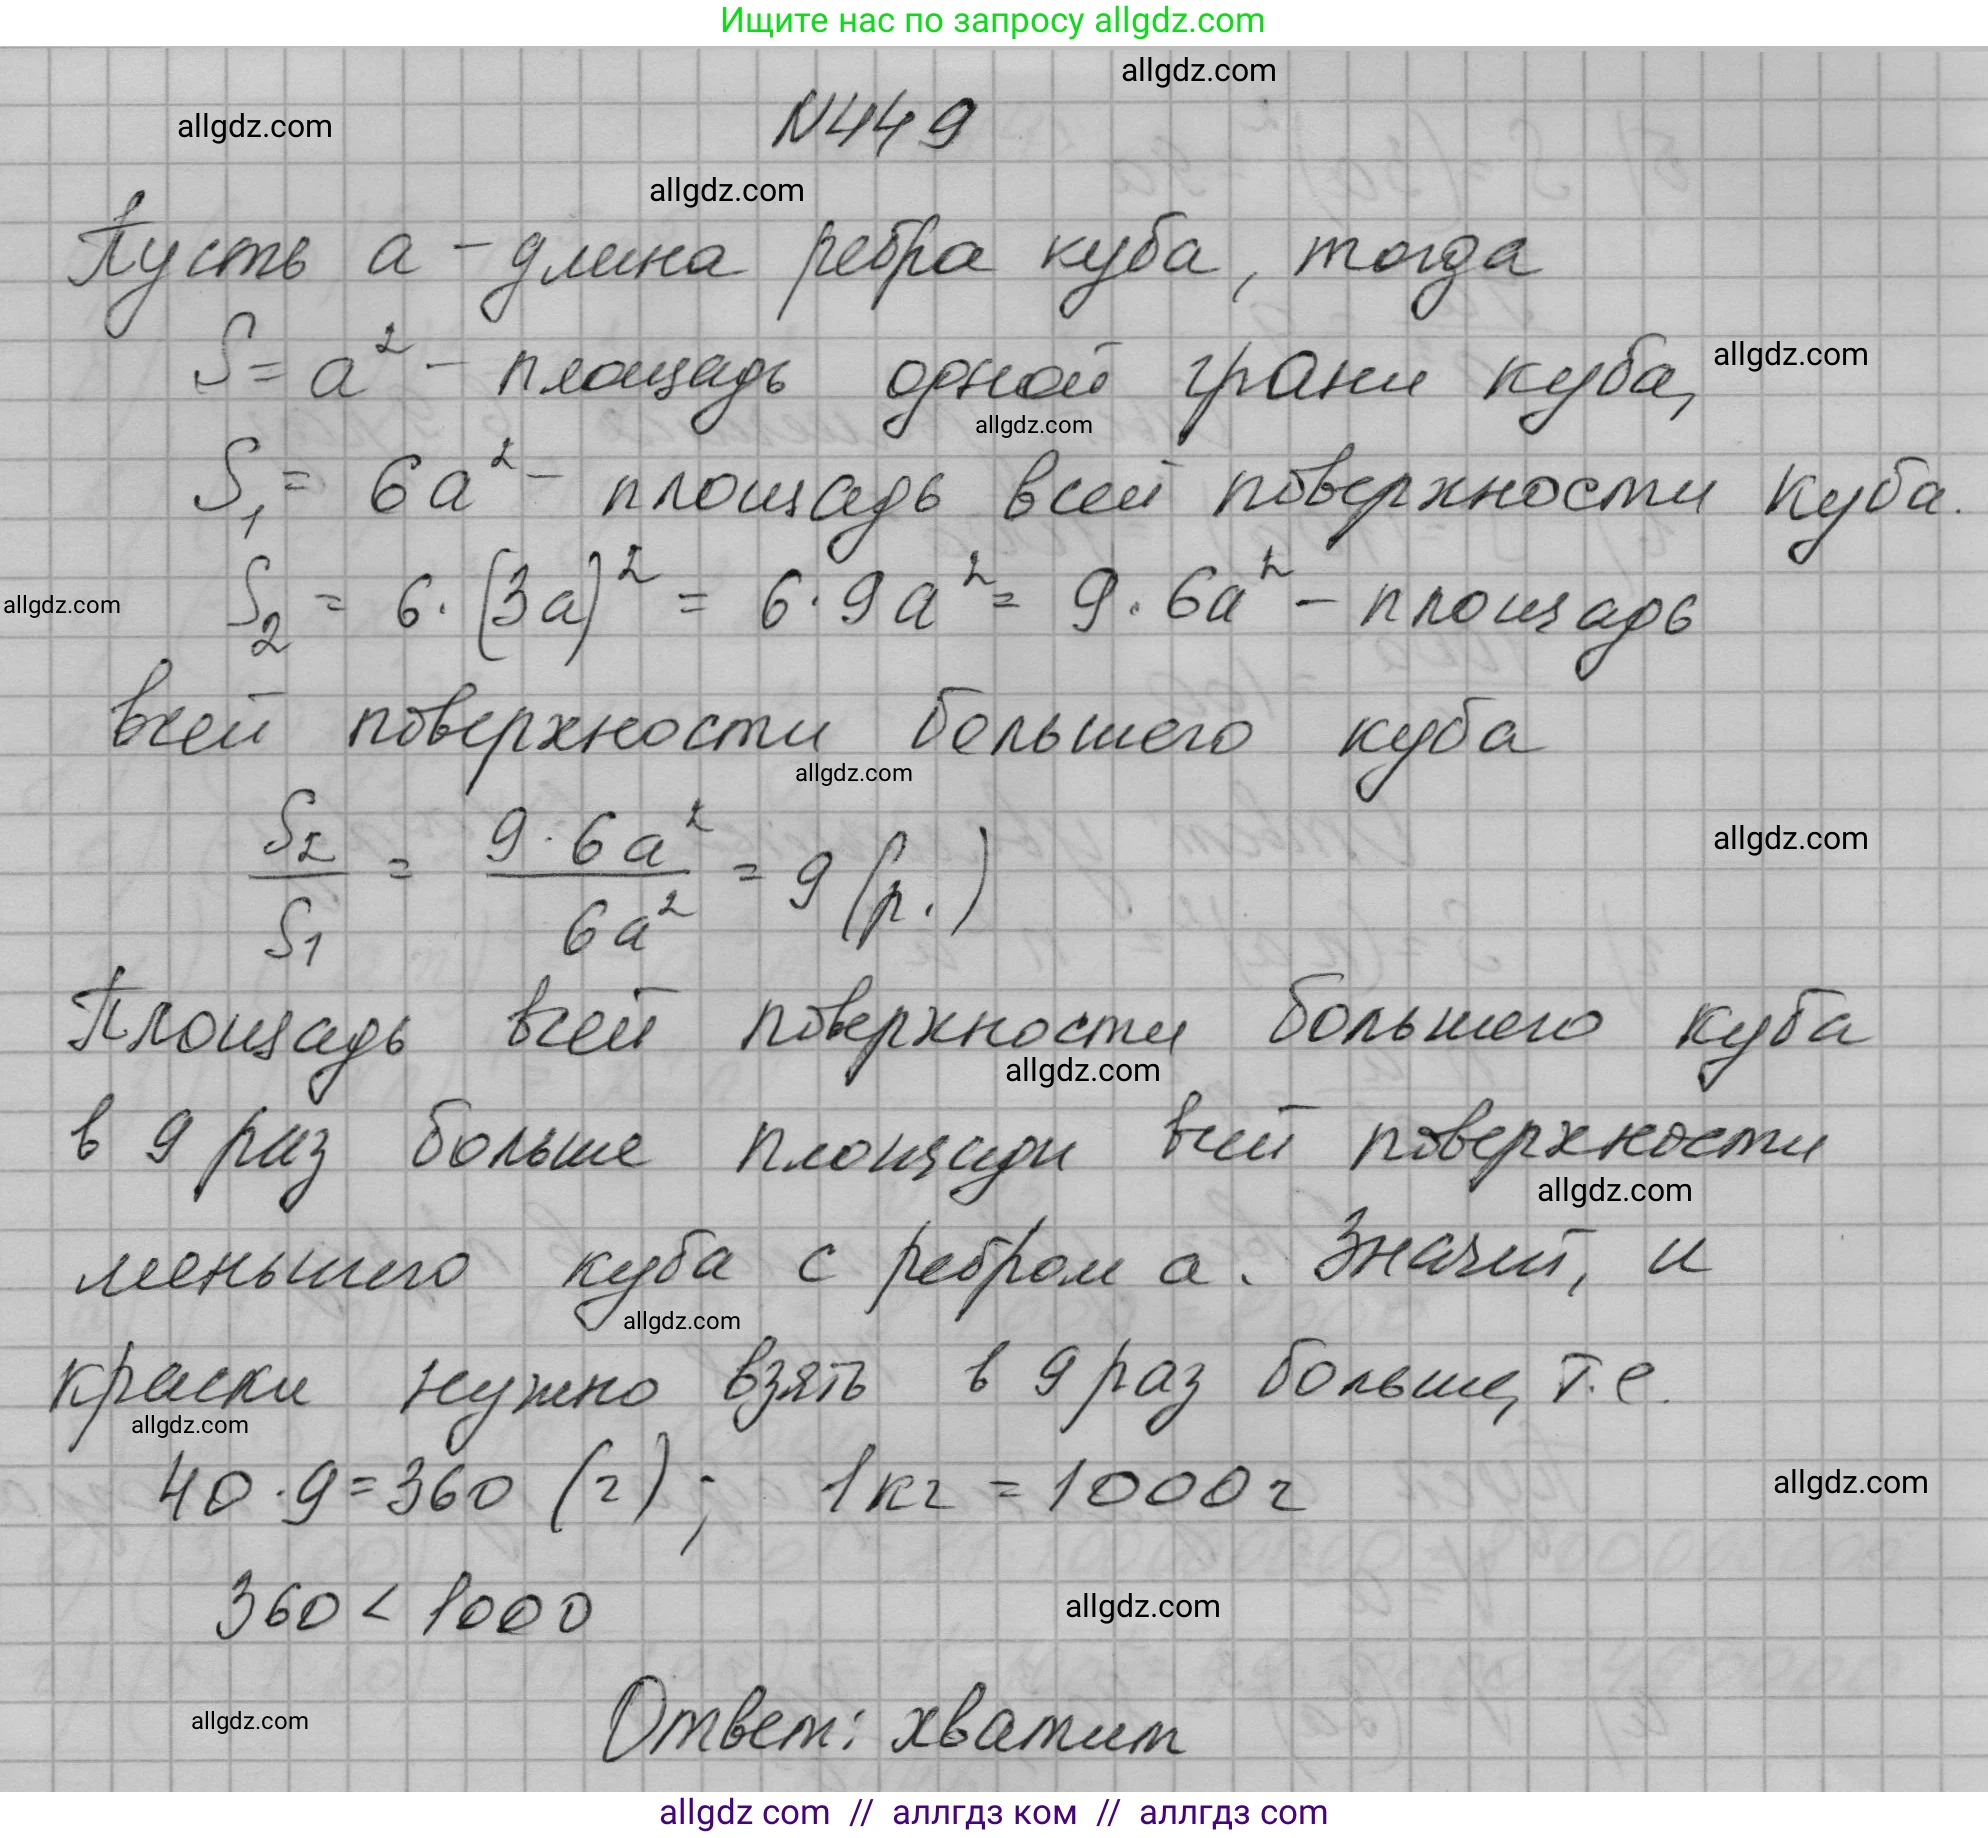 Ищите нас по запросу allgdz.com
allgdz.com
allgdz.com
N449
allgdz.com
Пусть a - длина ребра куба, тогда
S = a² - площадь одной грани куба,
allgdz.com
allgdz.com
S₁ = 6a² - площадь всей поверхности куба.
S₂ = 6·(3a)² = 6·9a² = 9·6a² - площадь
allgdz.com
всей поверхности большего куба
allgdz.com
S₂/S₁ = 9·6a²/6a² = 9 (р.)
allgdz.com
Площадь всей поверхности большего куба
allgdz.com
в 9 раз больше площади всей поверхности
allgdz.com
меньшего куба с ребром a. Значит, и
allgdz.com
краски нужно взять в 9 раз больше, т.е.
allgdz.com
40·9=360 (г); 1кг = 1000г
allgdz.com
360 < 1000
allgdz.com
Ответ: хватит
allgdz.com
allgdz com // аллгдз ком // аллгдз com